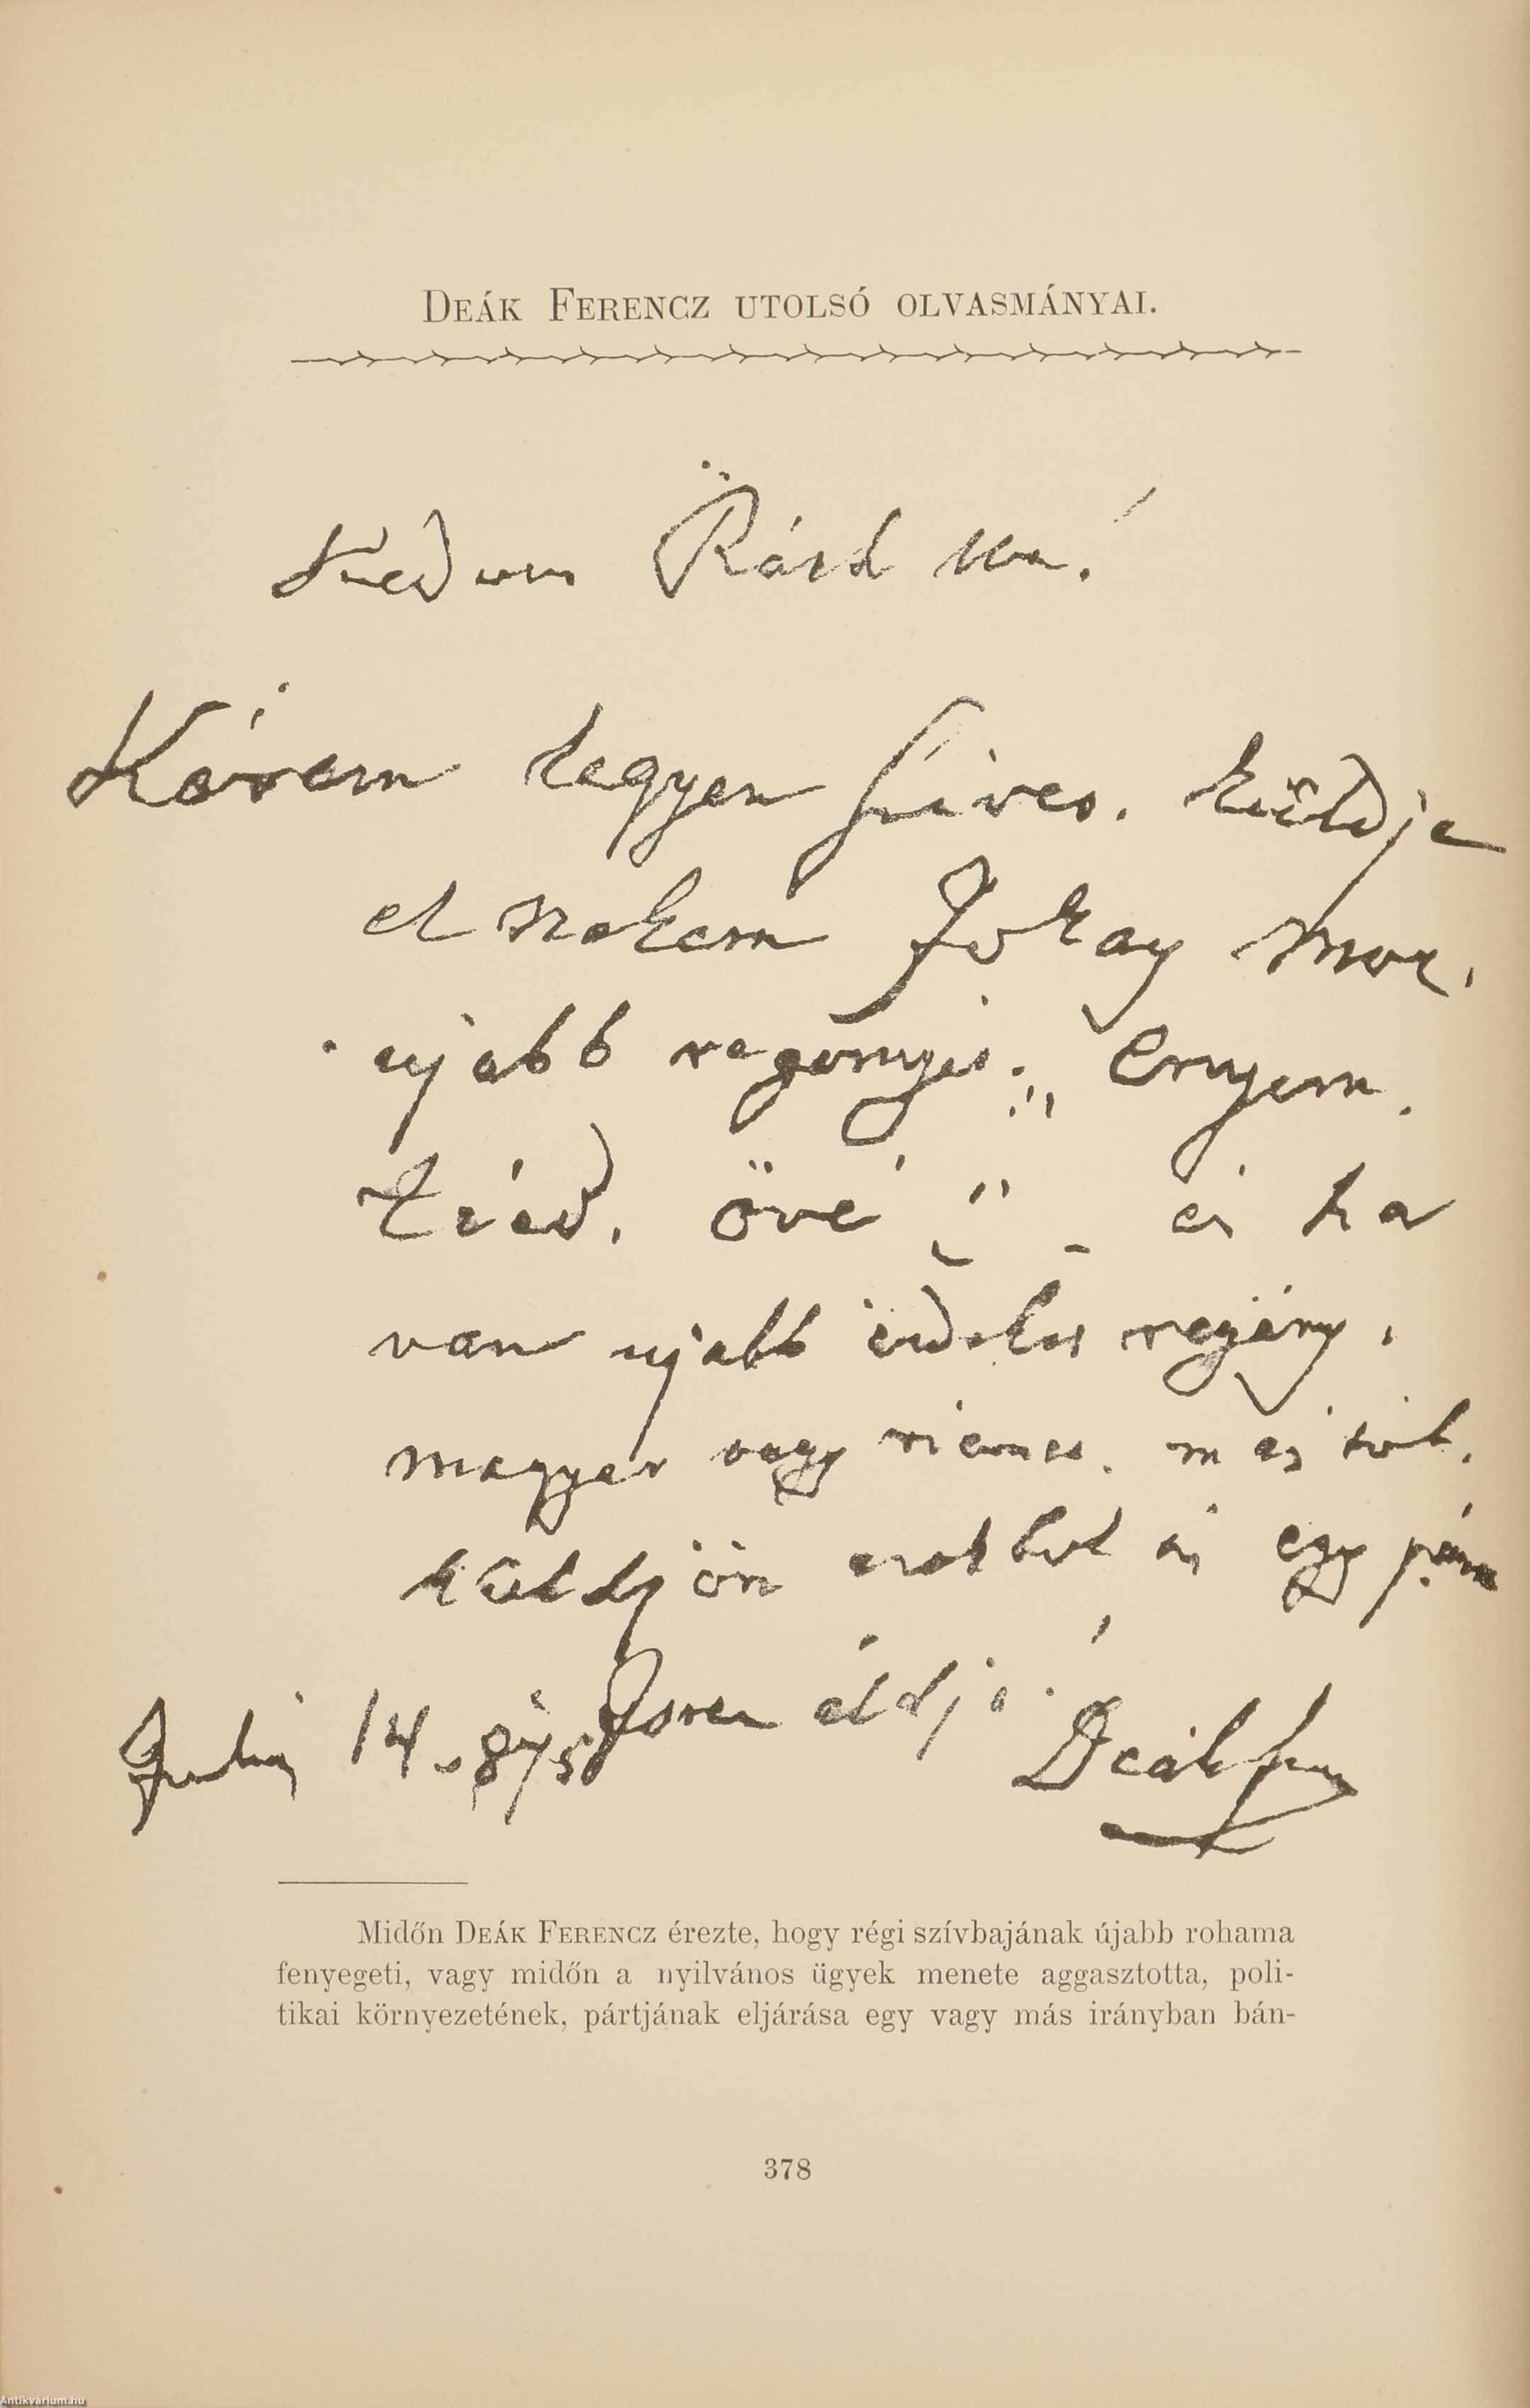 DEÁK FERENCZ UTOLSÓ OLVASMÁNYAI.
Ráth
Kérem legyen szives. küldje
el nekem Jokay Mor.
ujabb regényét: „Enyem.
Tiéd. övé“ – és ha
van ujabb érdekes regény,
magyar vagy
küldjön azokbol is egy párt
Isten áldja. Deák
July 14. 875
Midőn DEÁK FERENCZ érezte, hogy régi szívbajának újabb rohama
fenyegeti, vagy midőn a nyilvános ügyek menete aggasztotta, poli-
tikai környezetének, pártjának eljárása egy vagy más irányban bán-
378
Antikvárium.hu